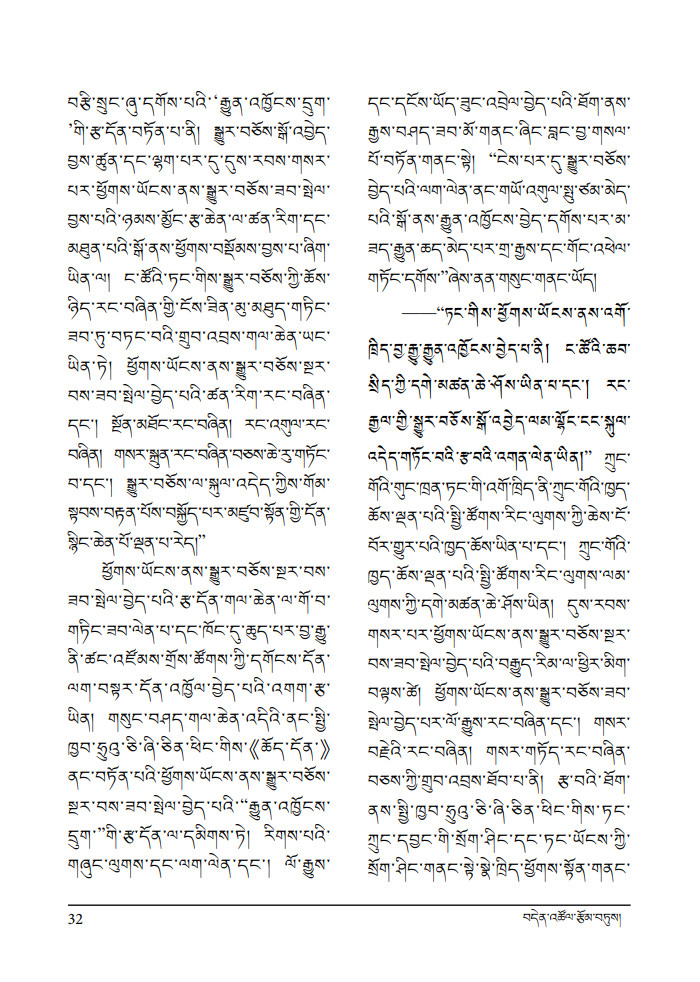 བརྩི་སྲུང་ཞུ་དགོས་པའི་‘རྒྱུན་འཁྱོངས་དྲུག་
’གི་རྩ་དོན་བཏོན་པ་ནི། སྒྱུར་བཅོས་སྒོ་འབྱེད་
བྱས་ཚུན་དང་ལྷག་པར་དུ་དུས་རབས་གསར་
པར་ཕྱོགས་ཡོངས་ནས་སྒྱུར་བཅོས་ཟབ་སྤེལ་
བྱས་པའི་ཉམས་མྱོང་རྩ་ཆེན་ལ་ཚན་རིག་དང་
མཐུན་པའི་སྒོ་ནས་ཕྱོགས་བསྡོམས་བྱས་པ་ཞིག་
ཡིན་ལ། ང་ཚོའི་ཏང་གིས་སྒྱུར་བཅོས་ཀྱི་ཆོས་
ཉིད་རང་བཞིན་གྱི་ངོས་ཟིན་མུ་མཐུད་གཏིང་
ཟབ་ཏུ་བཏང་བའི་གྲུབ་འབྲས་གལ་ཆེན་ཡང་
ཡིན་ཏེ། ཕྱོགས་ཡོངས་ནས་སྒྱུར་བཅོས་སྔར་
བས་ཟབ་སྤེལ་བྱེད་པའི་ཚན་རིག་རང་བཞིན་
དང་། སྔོན་མཐོང་རང་བཞིན། རང་འགུལ་རང་
བཞིན། གསར་སྐྲུན་རང་བཞིན་བཅས་ཆེ་རུ་གཏོང་
བ་དང་། སྒྱུར་བཅོས་ལ་སྐུལ་འདེད་ཀྱིས་གོམ་
སྟབས་བརྟན་པོས་བསྐྱོད་པར་མཛུབ་སྟོན་གྱི་དོན་
སྙིང་ཆེན་པོ་ལྡན་པ་རེད།”
ཕྱོགས་ཡོངས་ནས་སྒྱུར་བཅོས་སྔར་བས་
ཟབ་སྤེལ་བྱེད་པའི་རྩ་དོན་གལ་ཆེན་ལ་གོ་བ་
གཏིང་ཟབ་ལེན་པ་དང་ཁོང་དུ་ཆུད་པར་བྱ་རྒྱུ་
ནི་ཚང་འཛོམས་གྲོས་ཚོགས་ཀྱི་དགོངས་དོན་
ལག་བསྟར་དོན་འཁྱོལ་བྱེད་པའི་འགག་རྩ་
ཡིན། གསུང་བཤད་གལ་ཆེན་འདིའི་ནང་སྤྱི་
ཁྱབ་ཧྲུའུ་ཅི་ཞི་ཅིན་ཕིང་གིས་《ཆོད་དོན་》
ནང་བཏོན་པའི་ཕྱོགས་ཡོངས་ནས་སྒྱུར་བཅོས་
སྔར་བས་ཟབ་སྤེལ་བྱེད་པའི་“རྒྱུན་འཁྱོངས་
དྲུག་”གི་རྩ་དོན་ལ་དམིགས་ཏེ། རིགས་པའི་
གཞུང་ལུགས་དང་ལག་ལེན་དང་། ལོ་རྒྱུས་
དང་དངོས་ཡོད་ཟུང་འབྲེལ་བྱེད་པའི་ཐོག་ནས་
རྒྱས་བཤད་ཟབ་མོ་གནང་ཞིང་བླང་བྱ་གསལ་
པོ་བཏོན་གནང་སྟེ། “ངེས་པར་དུ་སྒྱུར་བཅོས་
བྱེད་པའི་ལག་ལེན་ནང་གཡོ་འགུལ་སྤུ་ཙམ་མེད་
པའི་སྒོ་ནས་རྒྱུན་འཁྱོངས་བྱེད་དགོས་པར་མ་
ཟད་རྒྱུན་ཆད་མེད་པར་གྲ་རྒྱས་དང་གོང་འཕེལ་
གཏོང་དགོས་”ཞེས་ནན་གསུང་གནང་ཡོད།
——“ཏང་གིས་ཕྱོགས་ཡོངས་ནས་འགོ་
ཁྲིད་བྱ་རྒྱུ་རྒྱུན་འཁྱོངས་བྱེད་པ་ནི། ང་ཚོའི་ཆབ་
སྲིད་ཀྱི་དགེ་མཚན་ཆེ་ཤོས་ཡིན་པ་དང་། རང་
རྒྱལ་གྱི་སྒྱུར་བཅོས་སྒོ་འབྱེད་ལམ་ལྷོང་ངང་སྐུལ་
འདེད་གཏོང་བའི་རྩ་བའི་འགན་ལེན་ཡིན།” ཀྲུང་
གོའི་གུང་ཁྲན་ཏང་གི་འགོ་ཁྲིད་ནི་ཀྲུང་གོའི་ཁྱད་
ཆོས་ལྡན་པའི་སྤྱི་ཚོགས་རིང་ལུགས་ཀྱི་ཆེས་ངོ་
བོར་གྱུར་པའི་ཁྱད་ཆོས་ཡིན་པ་དང་། ཀྲུང་གོའི་
ཁྱད་ཆོས་ལྡན་པའི་སྤྱི་ཚོགས་རིང་ལུགས་ལམ་
ལུགས་ཀྱི་དགེ་མཚན་ཆེ་ཤོས་ཡིན། དུས་རབས་
གསར་པར་ཕྱོགས་ཡོངས་ནས་སྒྱུར་བཅོས་སྔར་
བས་ཟབ་སྤེལ་བྱེད་པའི་བརྒྱུད་རིམ་ལ་ཕྱིར་མིག་
བལྟས་ཚེ། ཕྱོགས་ཡོངས་ནས་སྒྱུར་བཅོས་ཟབ་
སྤེལ་བྱེད་པར་ལོ་རྒྱུས་རང་བཞིན་དང་། གསར་
བརྗེའི་རང་བཞིན། གསར་གཏོད་རང་བཞིན་
བཅས་ཀྱི་གྲུབ་འབྲས་ཐོབ་པ་ནི། རྩ་བའི་ཐོག་
ནས་སྤྱི་ཁྱབ་ཧྲུའུ་ཅི་ཞི་ཅིན་ཕིང་གིས་ཏང་
ཀྲུང་དབྱང་གི་སྲོག་ཤིང་དང་ཏང་ཡོངས་ཀྱི་
སྲོག་ཤིང་གནང་སྟེ་སྣེ་ཁྲིད་ཕྱོགས་སྟོན་གནང་
32 བདེན་འཚོལ་རྩོམ་བཏུས།